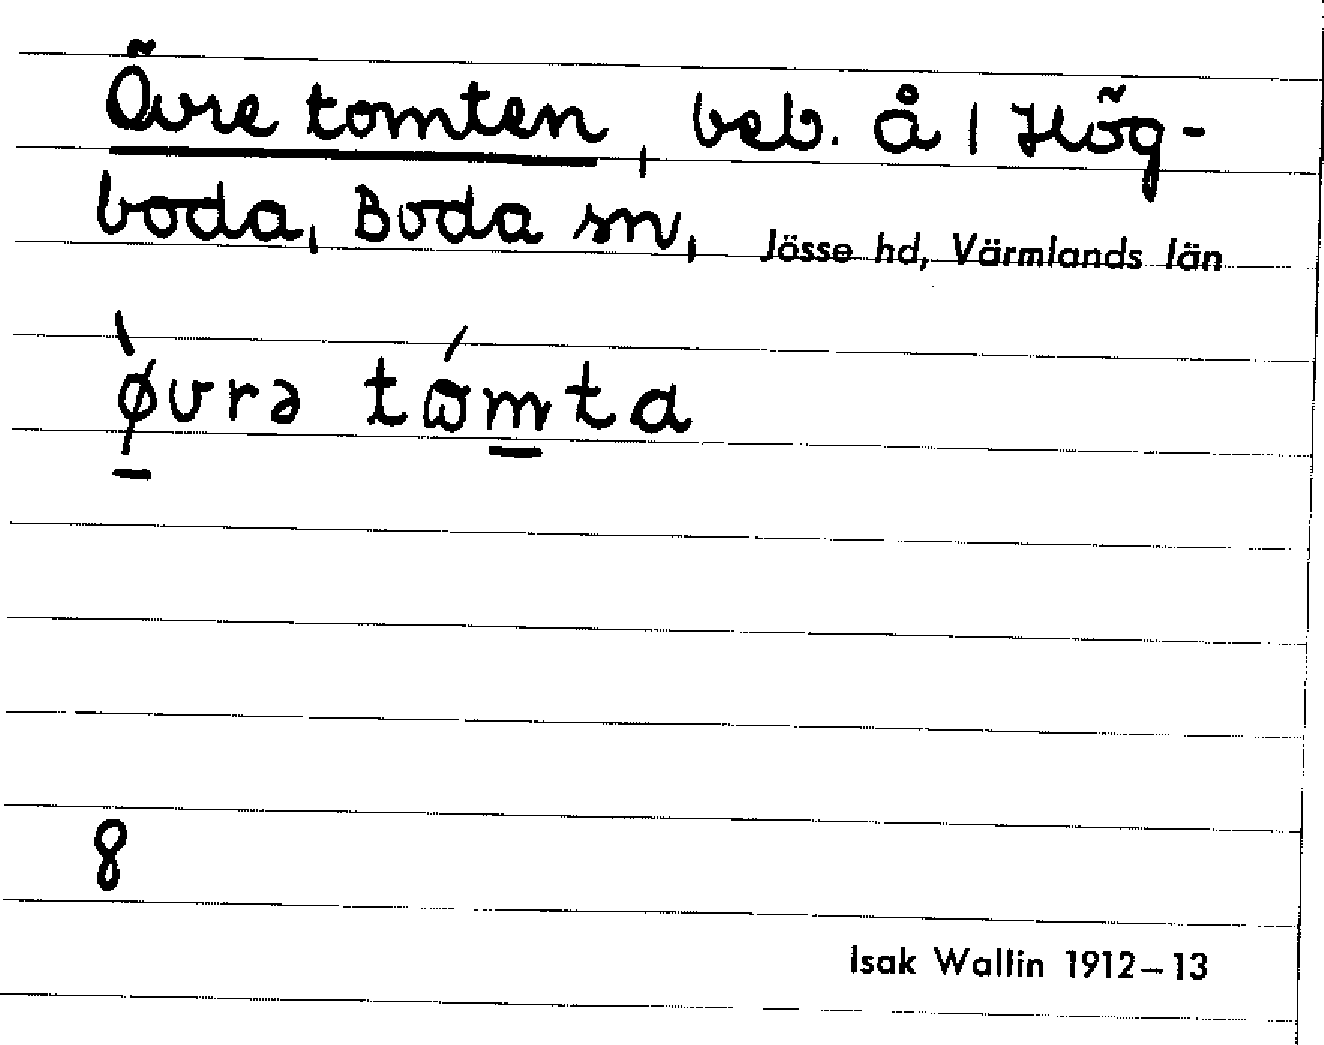 Övre tomten, beb. å 1 Hög-
boda, Boda sn, Jösse hd, Värmlands län
ø̀vrə tɷ́mta
8
Isak Wallin 1912–13